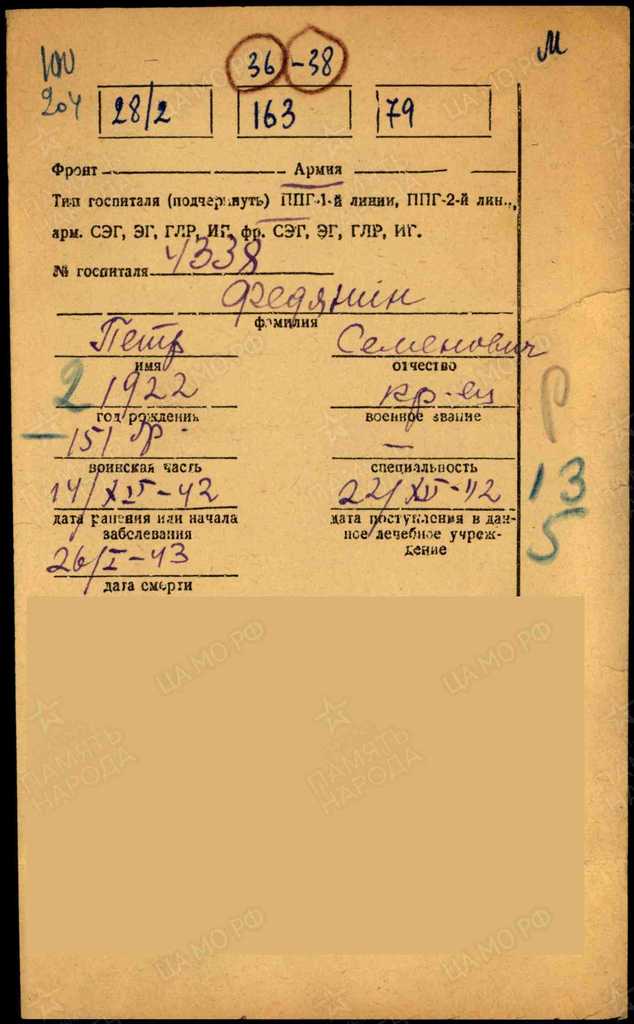 100
36 -38
м
204
28/2 163 79
Фронт Армия
Тип госпиталя (подчеркнуть) ППГ-1-й линии, ППГ-2-й лин.,
арм. СЭГ, ЭГ, ГЛР, ИГ, фр. СЭГ, ЭГ, ГЛР, ИГ.
№ госпиталя 4338
Федянин
фамилия
Петр Семенович
имя отчество
2 1922 кр-ец Р
год рождения военное звание
151 —
воинская часть специальность
14/XII-42 22/XII-42 13
дата ранения или начала дата поступления в дан-
заболевания ное лечебное учреж- 5
дение
26/I-43
дата смерти
ЦА МО РФ
ПАМЯТЬ
НАРОДА